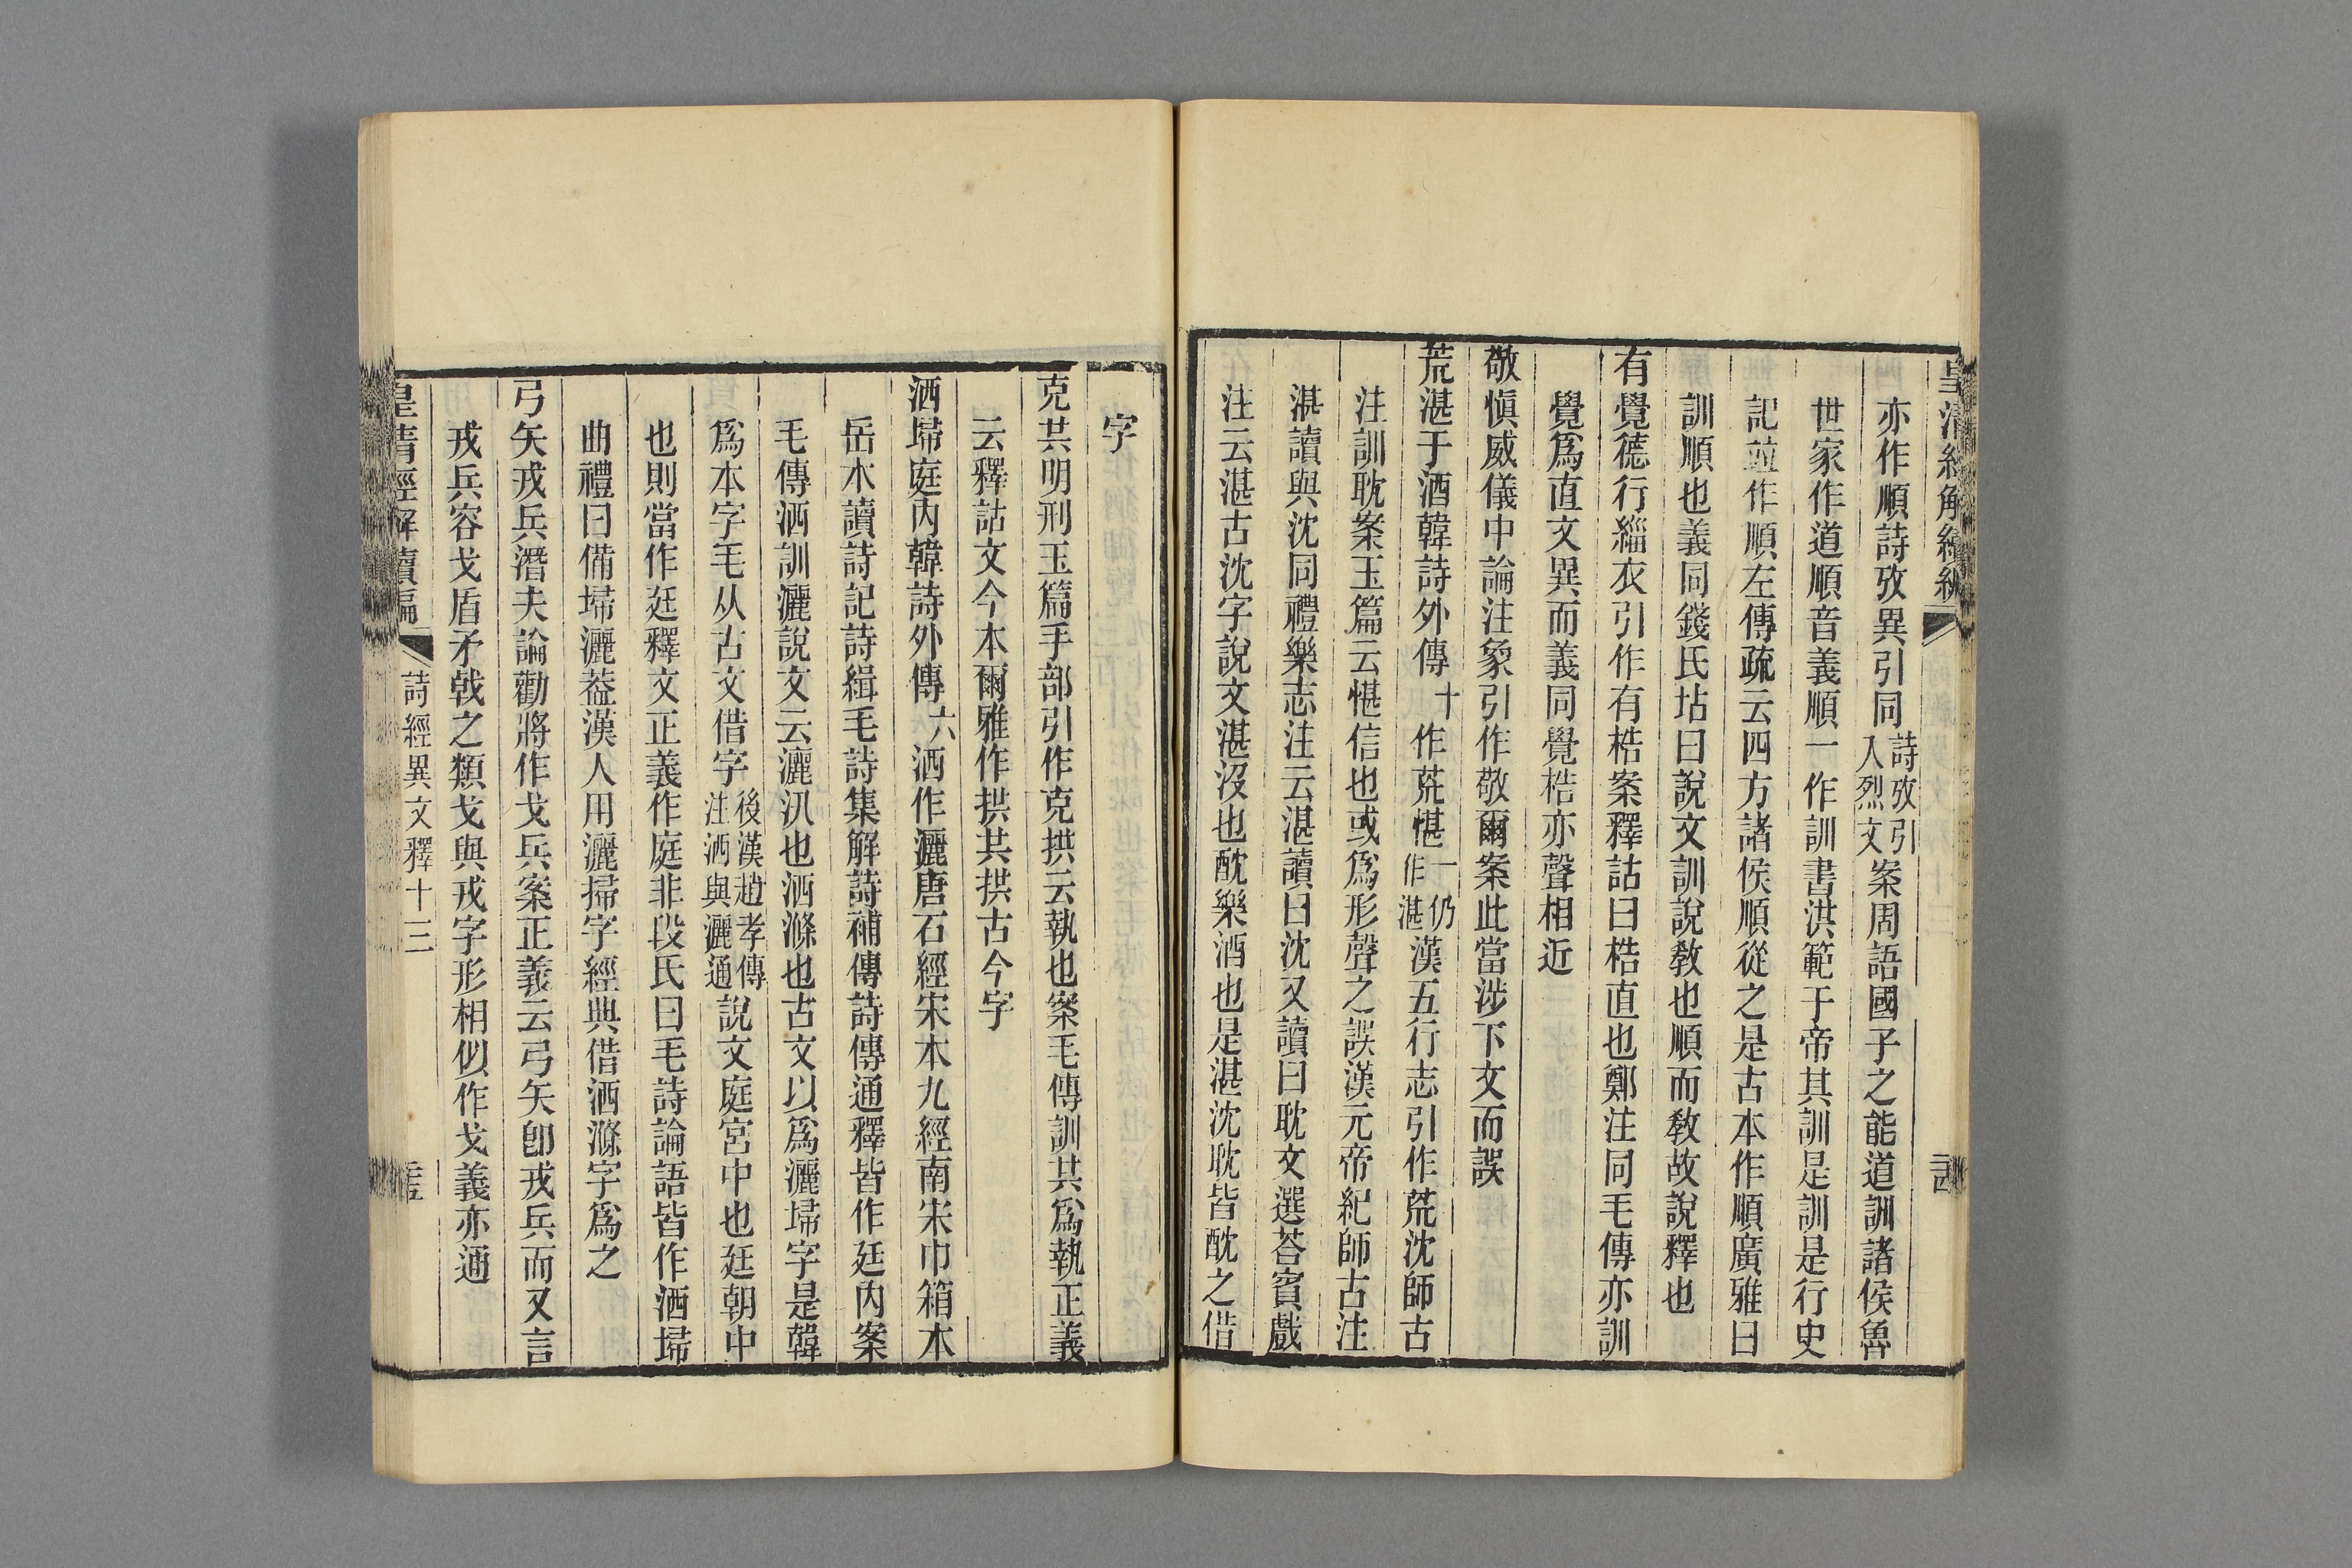 皇清經解續編
亦作順詩攷異引同詩攷引入烈文案周語國子之能道訓諸侯魯
世家作道順音義順一作訓書洪範于帝其訓是訓是行史
記並作順左傳疏云四方諸侯順從之是古本作順廣雅曰
訓順也義同錢氏坫曰說文訓說敎也順而敎故說釋也
有覺德行緇衣引作有梏案釋詁曰梏直也鄭注同毛傳亦訓
覺爲直文異而義同覺梏亦聲相近
敬愼威儀中論注象引作敬爾案此當涉下文而誤
荒湛于酒韓詩外傳十作荒愖一仍作湛漢五行志引作荒沈師古
注訓耽案玉篇云愖信也或爲形聲之誤漢元帝紀師古注
湛讀與沈同禮樂志注云湛讀曰沈又讀曰耽文選荅賓戲
注云湛古沈字說文湛沒也酖樂酒也是湛沈耽皆酖之借
字
克共明刑玉篇手部引作克拱云執也案毛傳訓共爲執正義
云釋詁文今本爾雅作拱共拱古今字
洒埽庭內韓詩外傳六洒作灑唐石經宋本九經南宋巾箱本
岳本讀詩記詩緝毛詩集解詩補傳詩傳通釋皆作廷內案
毛傳洒訓灑說文云灑汛也洒滌也古文以爲灑埽字是韓
爲本字毛从古文借字後漢趙孝傳注洒與灑通說文庭宮中也廷朝中
也則當作廷釋文正義作庭非段氏曰毛詩論語皆作洒埽
曲禮曰備埽灑葢漢人用灑掃字經典借洒滌字爲之
弓矢戎兵潛夫論勸將作戈兵案正義云弓矢卽戎兵而又言
戎兵容戈盾矛戟之類戈與戎字形相似作戈義亦通
皇清經解續編 詩經異文釋十三